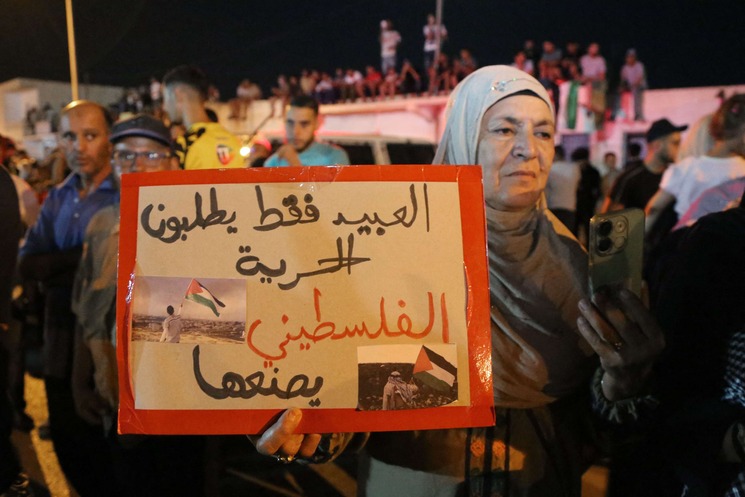 العبيد فقط يطلبون
الحرية
الفلسطيني
يصنعها